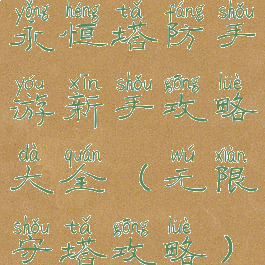 yǒng héng tǎ fáng shǒu
永恒塔防手
yóu xīn shǒu gōng lüè
游新手攻略
dà quán wú xiàn
大全（无限
shǒu tǎ gōng lüè
守塔攻略）